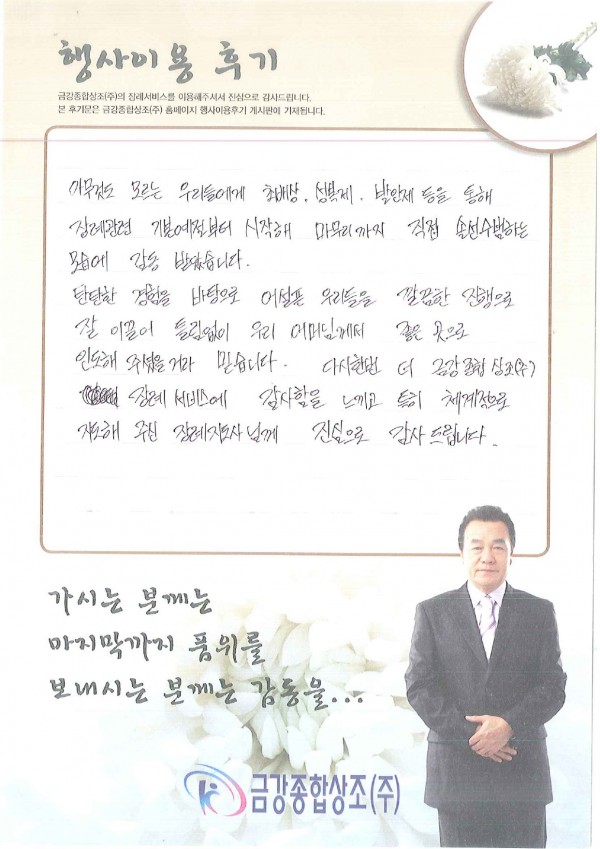 행사이용 후기
금강종합상조(주)의 장례서비스를 이용해주셔서 진심으로 감사드립니다.
본 후기문은 금강종합상조(주) 홈페이지 행사이용후기 게시판에 기재됩니다.
아무것도 모르는 우리들에게 초배상, 성복제, 발인제 등을 통해
장례관련 기본예절부터 시작해 마무리까지 직접 솔선수범하는
모습에 감동 받았습니다.
탄탄한 경험을 바탕으로 어설픈 우리들을 깔끔한 진행으로
잘 이끌어 틀림없이 우리 어머님께서 좋은 곳으로
인도해 주셨을거라 믿습니다. 다시한번 더 금강종합상조(주)
장례서비스에 감사함을 느끼고 특히 체계적으로
지도해 주신 장례지도사님께 진심으로 감사드립니다.
가시는 분께는
마지막까지 품위를
보내시는 분께는 감동을...
금강종합상조(주)